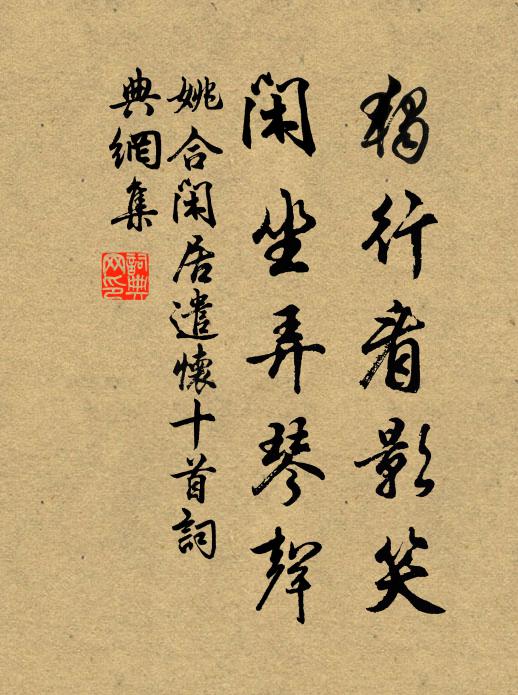 獨行看影笑
閑坐弄琴聲
姚合閑居遣懷十首詞
典網集
詞典網印